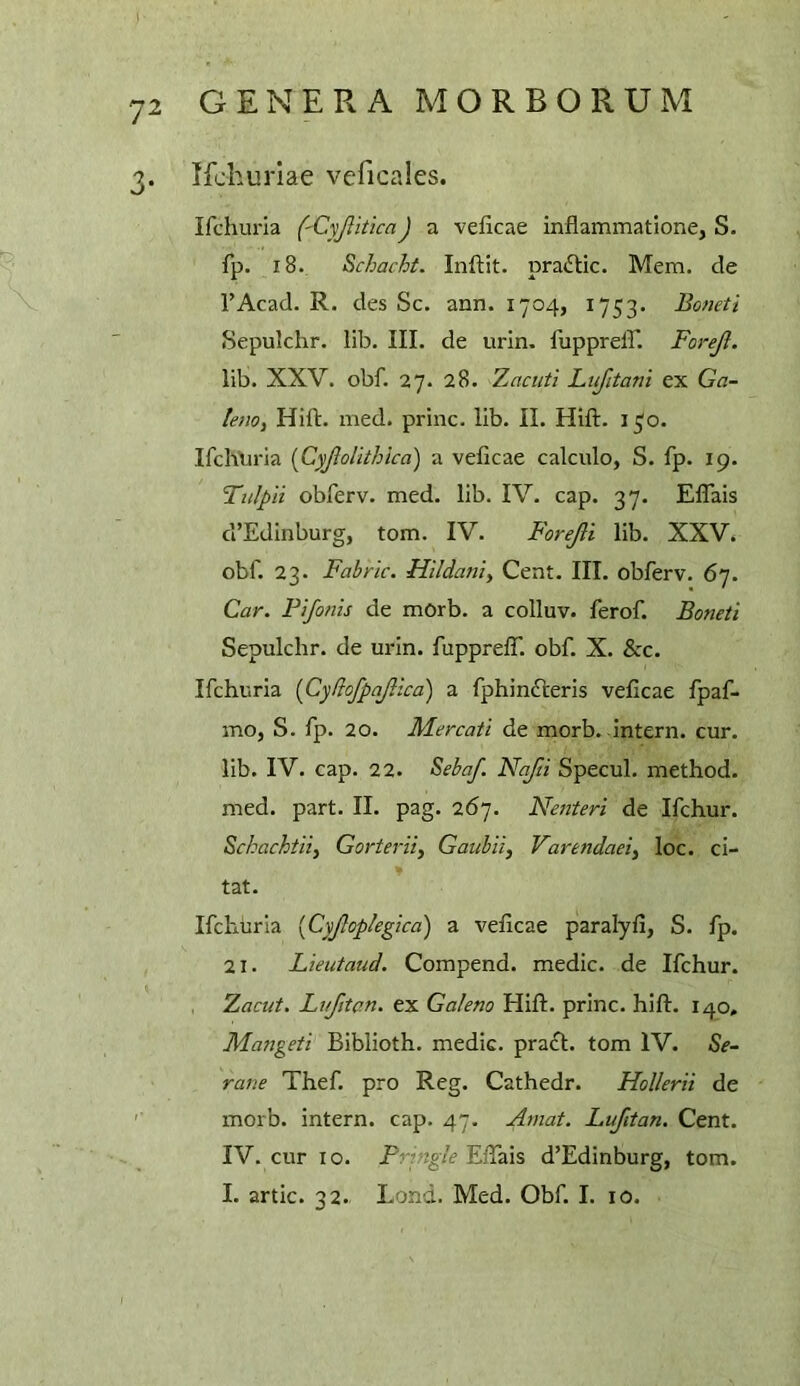 72 GENERA MORBORUM
3. Iſchuriae veſicales.
Iſchuria (Cyſtitica) a veſicae inflammatione, S.
ſp. 18. Schacht. Inſtit. practic. Mem. de
l’Acad. R. des Sc. ann. 1704, 1753. Boneti
Sepulchr. lib. III. de urin. ſuppreſſ. Foreſt.
lib. XXV. obſ. 27. 28. Zacuti Luſitani ex Ga-
leno, Hiſt. med. princ. lib. II. Hiſt. 150.
Iſchuria (Cyſtolithica) a veſicae calculo, S. ſp. 19.
Tulpii obſerv. med. lib. IV. cap. 37. Eſſais
d’Edinburg, tom. IV. Foreſti lib. XXV.
obſ. 23. Fabric. Hildani, Cent. III. obſerv. 67.
Car. Piſonis de morb. a colluv. ſeroſ. Boneti
Sepulchr. de urin. ſuppreſſ. obſ. X. &c.
Iſchuria (Cyſtoſpaſtica) a ſphincteris veſicae ſpaſ-
mo, S. ſp. 20. Mercati de morb. intern. cur.
lib. IV. cap. 22. Sebaſ. Naſii Specul. method.
med. part. II. pag. 267. Nenteri de Iſchur.
Schachtii, Gorterii, Gaubii, Varendaei, loc. ci-
tat.
Iſchuria (Cyſtoplegica) a veſicae paralyſi, S. ſp.
21. Lieutaud. Compend. medic. de Iſchur.
Zacut. Luſitan. ex Galeno Hiſt. princ. hiſt. 140.
Mangeti Biblioth. medic. pract. tom IV. Se-
rane Theſ. pro Reg. Cathedr. Hollerii de
morb. intern. cap. 47. Amat. Luſitan. Cent.
IV. cur 10. Pringle Eſſais d’Edinburg, tom.
I. artic. 32. Lond. Med. Obſ. I. 10.